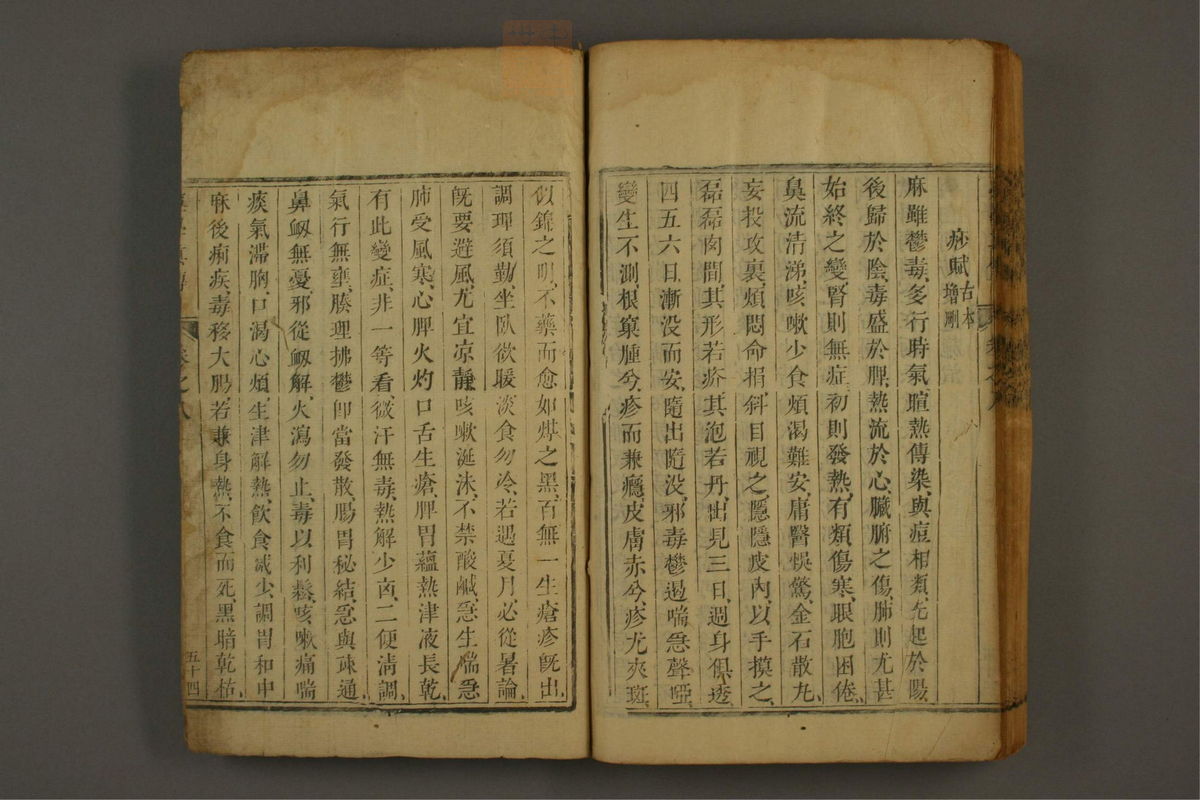 痧賦 古本增刪
麻雖鬱毒、多行時氣、暄熱傳染、與痘相類、先起於陽
後歸於陰、毒盛於脾、熱流於心、臟腑之傷、肺則尤甚
始終之變、腎則無症、初則發熱、有類傷寒、眼胞困倦、
鼻流清涕、咳嗽少食、煩渴難安、庸醫悞驚、金石散丸、
妄投攻裏、煩悶命捐、斜目視之、隱隱皮內、以手摸之、
磊磊肉間、其形若疥、其泡若丹、出見三日、週身俱透、
四五六日、漸没而安、隨出隨没、邪毒鬱過、喘急聲啞、
變生不測、根窠腫兮、疹而兼癮、皮膚赤兮、疹尤夾斑、
似錦之明、不藥而愈、如煤之黑、百無一生、瘡疹既出、
調理須勤、坐臥欲暖、淡食勿冷、若遇夏月、必從暑論、
既要避風、尤宜凉靜、咳嗽涎沫、不禁酸鹹、急生喘急
肺受風寒、心脾火灼、口舌生瘡、脾胃蘊熱、津液長乾、
有此變症、非一等看、微汗無毒、熱解少囟、二便清調、
氣行無壅、腠理拂鬱、卽當發散、腸胃秘結、急與疎通、
鼻衂無憂、邪從衂解、火瀉勿止、毒以利鬆、咳嗽痛喘
痰氣滯胸、口渴心煩、生津解熱、飲食減少、調胃和中
麻後痢疾、毒移大腸、若兼身熱、不食而死、黑暗乾枯、
卷之八
五十四